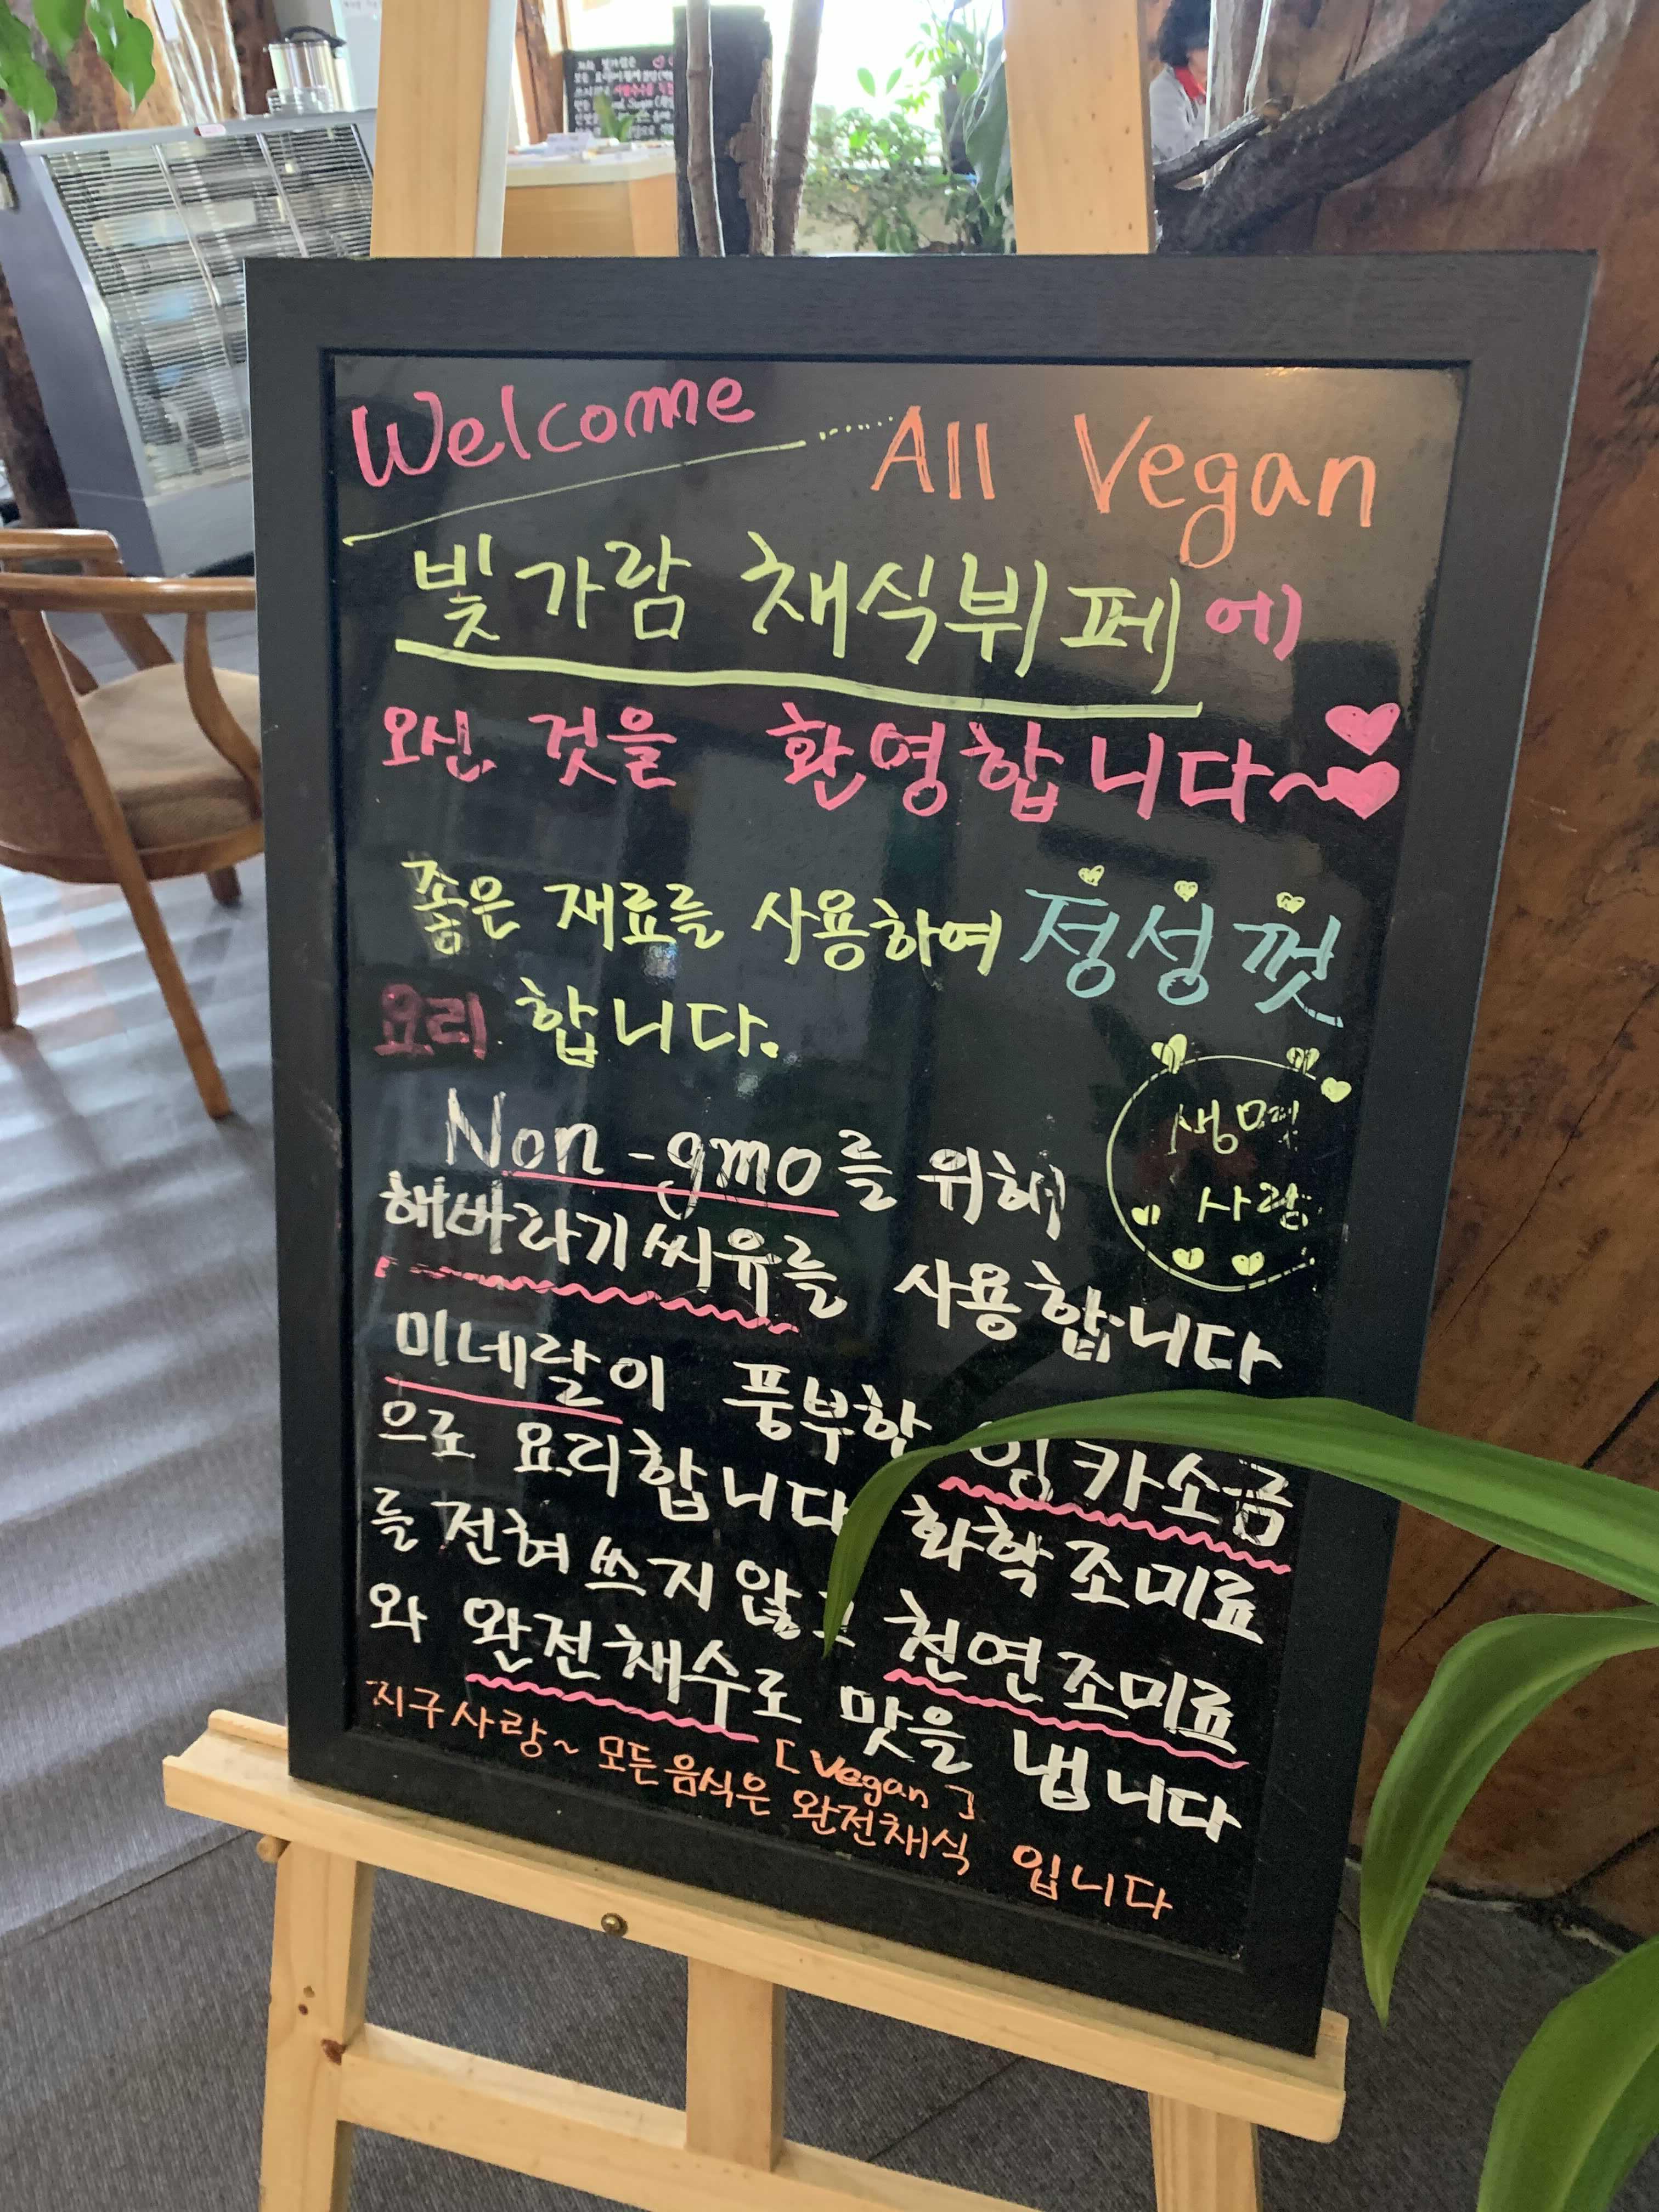 Welcome
All Vegan
빛가람 채식뷔페에
오신 것을 환영합니다~
좋은 재료를 사용하여 정성껏
요리 합니다.
생명
사랑
Non-gmo를 위해
해바라기씨유를 사용합니다
미네랄이 풍부한 잉카소금
으로 요리합니다 화학조미료
를 전혀 쓰지 않고 천연조미료
와 완전채수로 맛을 냅니다
[Vegan]
지구사랑~ 모든음식은 완전채식 입니다